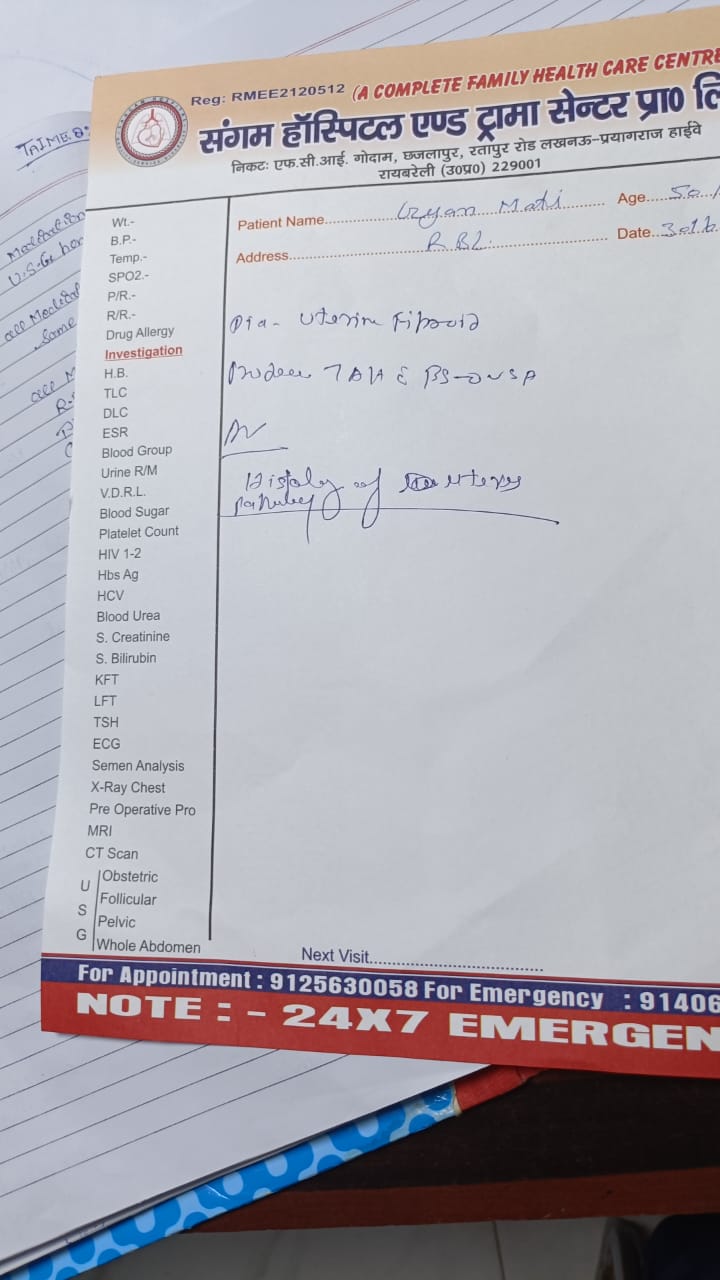 TAIME.8:
Medical
U.S.G
all Medical
Same
all M
Reg: RMEE2120512 (A COMPLETE FAMILY HEALTH CARE CENTRE
संगम हॉस्पिटल एण्ड ट्रामा सेन्टर प्रा० लि
निकटः एफ.सी.आई. गोदाम, छजलापुर, रतापुर रोड लखनऊ-प्रयागराज हाईवे
रायबरेली (उ०प्र०) 229001
Patient Name Gyan Mati Age 50
Address RBL Date
Wt.-
B.P.-
Temp.-
SPO2.-
P/R.-
R/R.-
Drug Allergy
Investigation
H.B.
TLC
DLC
ESR
Blood Group
Urine R/M
V.D.R.L.
Blood Sugar
Platelet Count
HIV 1-2
Hbs Ag
HCV
Blood Urea
S. Creatinine
S. Bilirubin
KFT
LFT
TSH
ECG
Semen Analysis
X-Ray Chest
Pre Operative Pro
MRI
CT Scan
USG
Obstetric
Follicular
Pelvic
Whole Abdomen
Dia- Uterine Fibroid
TAH c BSO
of uterus
Next Visit
For Appointment : 9125630058 For Emergency : 91406
NOTE : - 24X7 EMERGEN